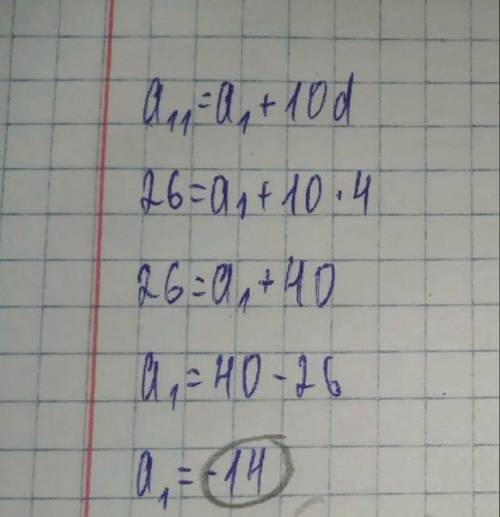 a₁₁=a₁+10d
26=a₁+10·4
26=a₁+40
a₁=40-26
a₁=-14